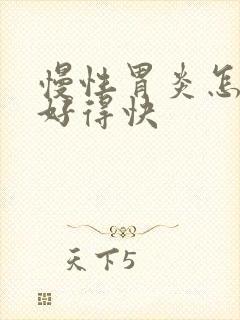 慢性胃炎怎
好得快
天下5